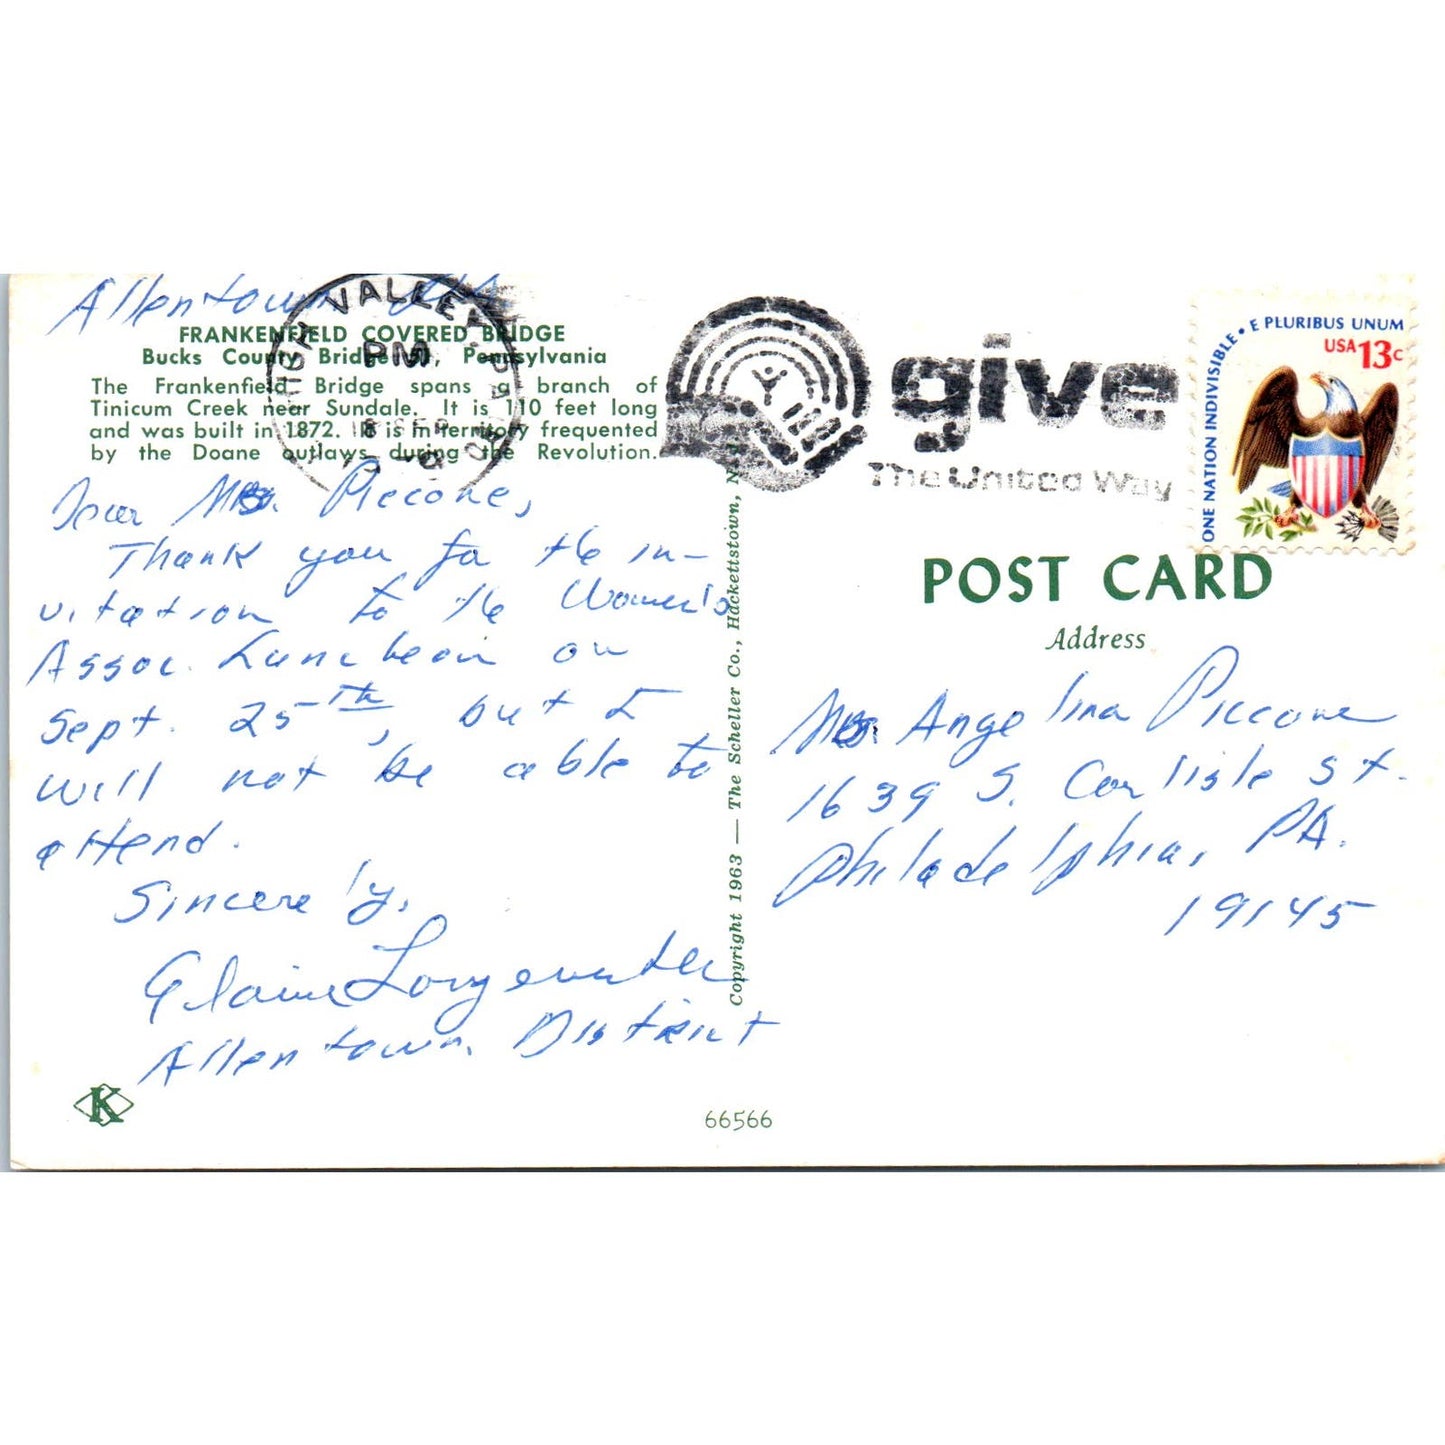 Allentown, PA.
FRANKENFIELD COVERED BRIDGE
Bucks County Bridge, Pennsylvania
The Frankenfield Bridge spans a branch of
Tinicum Creek near Sundale. It is 110 feet long
and was built in 1872. It is in territory frequented
by the Doane outlaws during the Revolution.
Dear Mrs. Piccone,
Thank you for the in-
vitation to the Women's
Assoc. Luncheon on
Sept. 25th, but I
will not be able to
attend.
Sincerely,
Elaine Longenecker
Allentown District
K
66566
Copyright 1963 — The Scheller Co., Hackettstown, N.J.
VALLEY, PA
PM
give
The United Way
ONE NATION INDIVISIBLE • E PLURIBUS UNUM
USA 13c
POST CARD
Address
Mrs. Angelina Piccone
1639 S. Carlisle St.
Philadelphia, PA.
19145